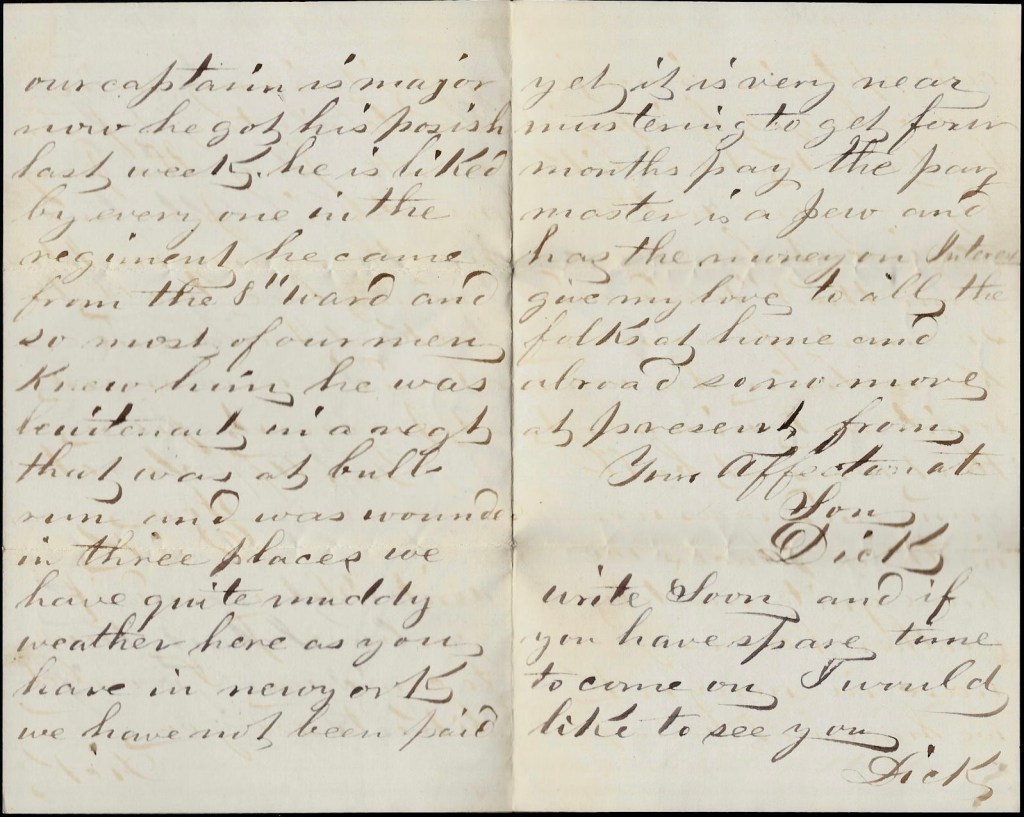 our captain is major
now he got his posish
last week. he is liked
by every one in the
regiment he came
from the 8" ward and
so most of our men
knew him he was
leuitenant in a regt
that was at bull
run and was wounde
in three places we
have quite muddy
weather here as you
have in newyork
we have not been paid
yet it is very near
mustering to get four
months pay the pay
master is a Jew and
has the money on Interes
give my love to all the
folks at home and
abroad so no more
at present from
Your Affectionate
Son
Dick
write Soon and if
you have spare time
to come on I would
like to see you
Dick